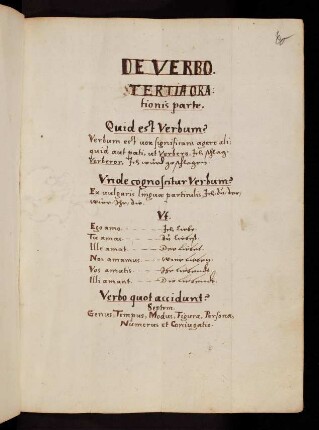 DE VERBO.
TERTIA ORA
tionis parte.
Quid est Verbum?
Verbum est vox significans agere ali
quid aut pati, ut Verbero Ich schlag
Verberor Ich würd geschlagen
Vnde cognoscitur Verbum?
Ex vulgaris linguæ particulis Ich, du, der,
wier, Ihr, die.
Vt
Ego amo Ich liebe.
Tu amas Du liebest.
Ille amat Der liebet.
Nos amamus Wier lieben.
Vos amatis Ihr liebende
Illi amant Die liebende.
Verbo quot accidunt?
Septem.
Genus, Tempus, Modus, Figura, Persona,
Numerus et Coniugatio.